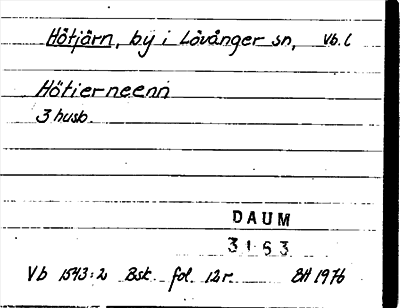 Hötjärn, by i Lövånger sn, Vb. l
Hötierneenn
3 husb.
DAUM
3163
Vb 1543:2 Bsk. fol. 12r. EH 1976